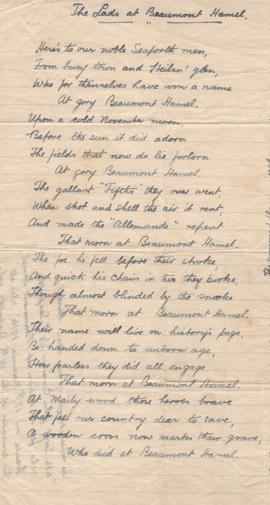 The Lads at "Beaumont Hamel.
Here's to our noble Seaforth men,
From busy town and Heilan' glen,
Who for themselves have won a name
At gory Beaumont Hamel.
Upon a cold November morn
Before the sun it did adorn
The fields that now do lie forlorn
At gory Beaumont Hamel.
The gallant "Fifths" they over went,
When shot and shell the air it rent,
And made the "Allemande" repent
That morn at Beaumont Hamel.
The foe he fell before their stroke
And quick his chain in two they broke,
Though almost blinded by the smoke
That morn at Beaumont Hamel.
Their name will live on history's page,
Be handed down to unborn age,
How fearless they did all engage
That morn at Beaumont Hamel.
At Maily wood those heroes brave
That fell our country dear to save,
A wooden cross now marks their grave,
Who died at Beaumont Hamel.